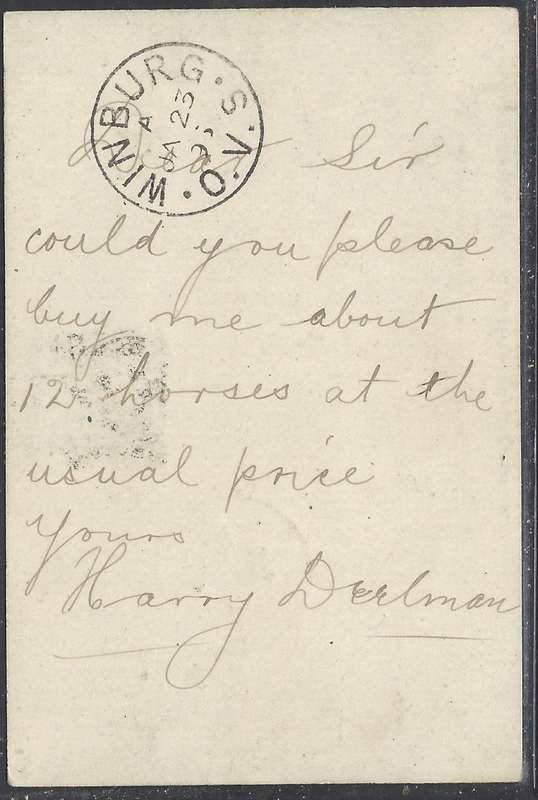 WINBURG · O.V.S.
A
JA 23
Dear Sir
could you please
buy me about
12 horses at the
usual price
Yours
Harry Deelman